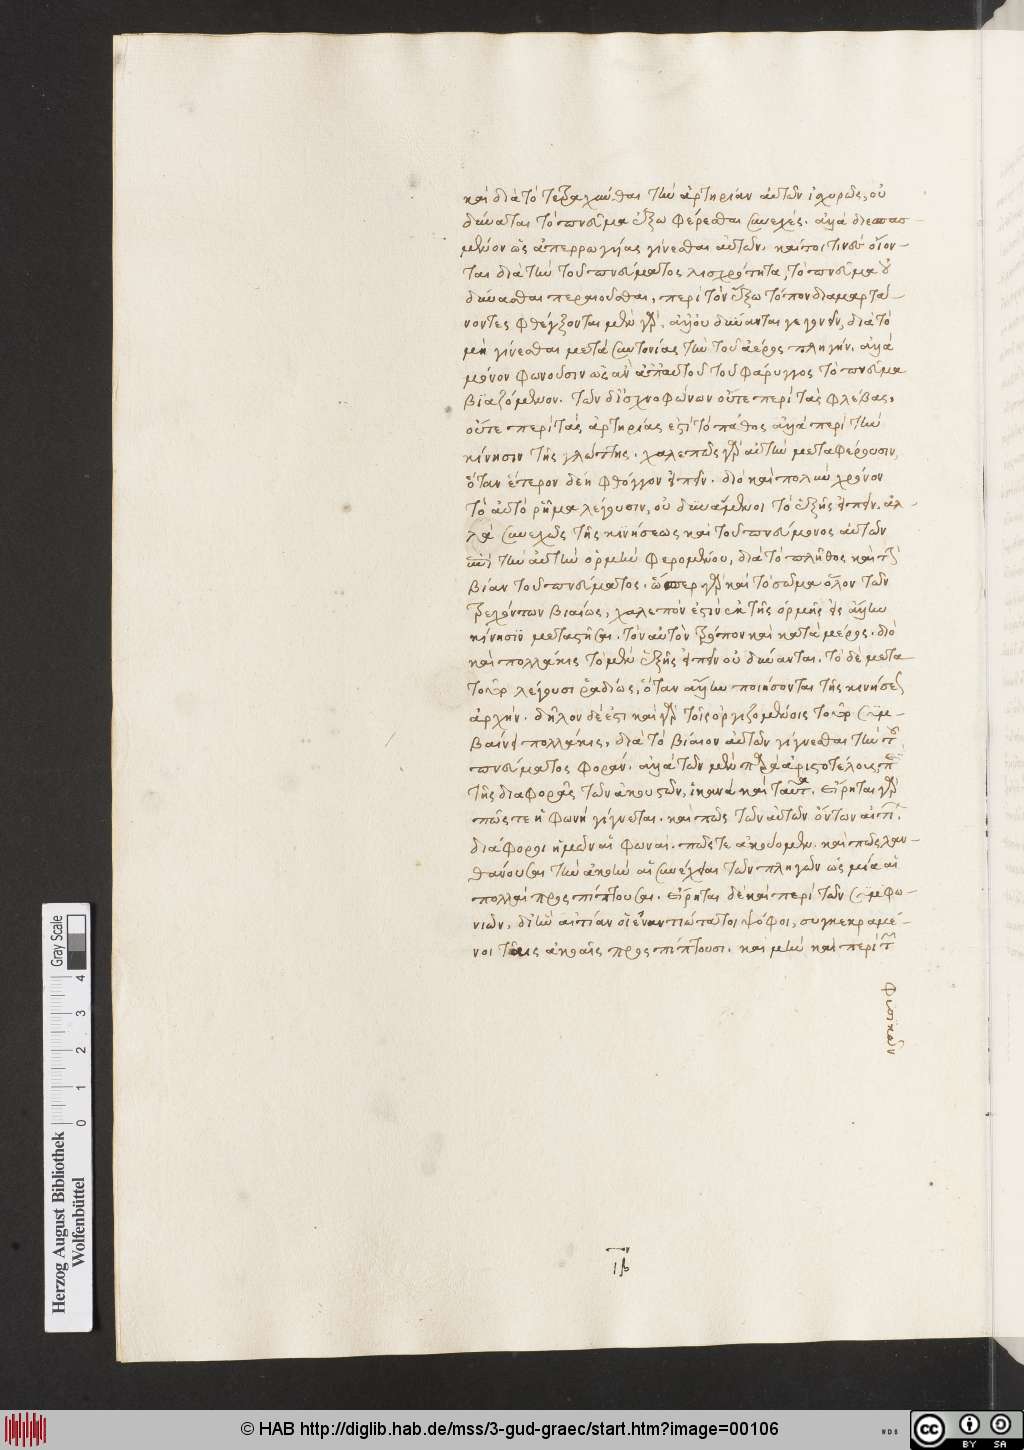 καὶ διὰ τὸ τετραχύνθαι τὴν ἀρτηρίαν αὐτῶν ἰσχυρῶς, οὐ
δύναται τὸ πνεῦμα ἔξω φέρεσθαι συνεχές. ἀλλὰ διεσπασ-
μένον ὡς ἀπερρωγγίας γίνεσθαι αὐτῶν. καί τοι τινὲς οἴον-
ται διὰ τὴν τοῦ πνεύματος λισχρότητα, τὸ πνεῦμα οὐ
δύνασθαι περαιοῦσθαι, περὶ τὸν ἔξω τόπον διαμαρτά-
νοντες φθέγγονται μὲν γὰρ. ἀλλ' οὐ δύνανται γεγωνεῖν, διὰ τὸ
μὴ γίνεσθαι μετὰ συντονίας τὴν τοῦ ἀέρος πληγήν. ἀλλὰ
μόνον φωνοῦσιν ὡς ἂν ἀπ' αὐτοῦ τοῦ φάρυγγος τὸ πνεῦμα
βιαζόμενον. τῶν δ' ἰσχνοφώνων οὔτε περὶ τὰς φλέβας,
οὔτε περὶ τὰς ἀρτηρίας ἐστὶ τὸ πάθος ἀλλὰ περὶ τὴν
κίνησιν τῆς γλώττης. χαλεπῶς γὰρ αὐτὴν μεταφέρουσιν,
ὅταν ἕτερον δέῃ φθόγγον εἰπεῖν. διὸ καὶ πολὺν χρόνον
τὸ αὐτὸ ῥῆμα λέγουσιν, οὐ δυνάμενοι τὸ ἑξῆς εἰπεῖν. ἀλ-
λὰ συνεχῶς τῆς κινήσεως καὶ τοῦ πνεύμονος αὐτῶν
ἐπὶ τὴν αὐτὴν ὁρμὴν φερομένου, διὰ τὸ πλῆθος καὶ τὴν
βίαν τοῦ πνεύματος. ὥσπερ γὰρ καὶ τὸ σῶμα ὅλον τῶν
τρεχόντων βιαίως, χαλεπόν ἐστιν ἐκ τῆς ὁρμῆς εἰς ἄλλην
κίνησιν μεταστῆσαι. τὸν αὐτὸν τρόπον καὶ κατὰ μέρος. διὸ
καὶ πολλάκις τὸ μὲν ἑξῆς εἰπεῖν οὐ δύνανται. τὸ δὲ μετὰ
τοῦτο λέγουσι ῥαδίως, ὅταν ἄλλην ποιήσονται τῆς κινήσεως
ἀρχήν. δῆλον δέ ἐστι καὶ γὰρ τοῖς ὀργιζομένοις τοῦτο συμ-
βαίνει πολλάκις, διὰ τὸ βίαιον αὐτῶν γίγνεσθαι τὴν τοῦ
πνεύματος φοράν. ἀλλὰ τῶν μὲν παρὰ ἀριστοτέλους περὶ
τῆς διαφορᾶς τῶν ἀκουστῶν, ἱκανὰ καὶ ταῦτα. εἴρηται γὰρ
πῶς τε ἡ φωνὴ γίγνεται. καὶ πῶς τῶν αὐτῶν ὄντων αἰτίων
διάφοροι ἡμῶν αἱ φωναί. πῶς τε ἀκούομεν. καὶ πῶς λαν-
θάνουσαι τὴν ἀκοὴν αἱ συνέχειαι τῶν πληγῶν ὡς μία αἱ
πολλαὶ προσπίπτουσαι. εἴρηται δὲ καὶ περὶ τῶν συμφω-
νιῶν, δι' ἣν αἰτίαν οἱ ἐναντιώτατοι ψόφοι, συγκεκραμέ-
νοι ταῖς ἀκοαῖς προσπίπτουσι. καὶ μὴν καὶ περὶ τῶν
φυσικῶν
ιβ
Herzog August Bibliothek
Wolfenbüttel
Gray Scale
0 1 2 3 4
© HAB http://diglib.hab.de/mss/3-gud-graec/start.htm?image=00106
cc BY SA